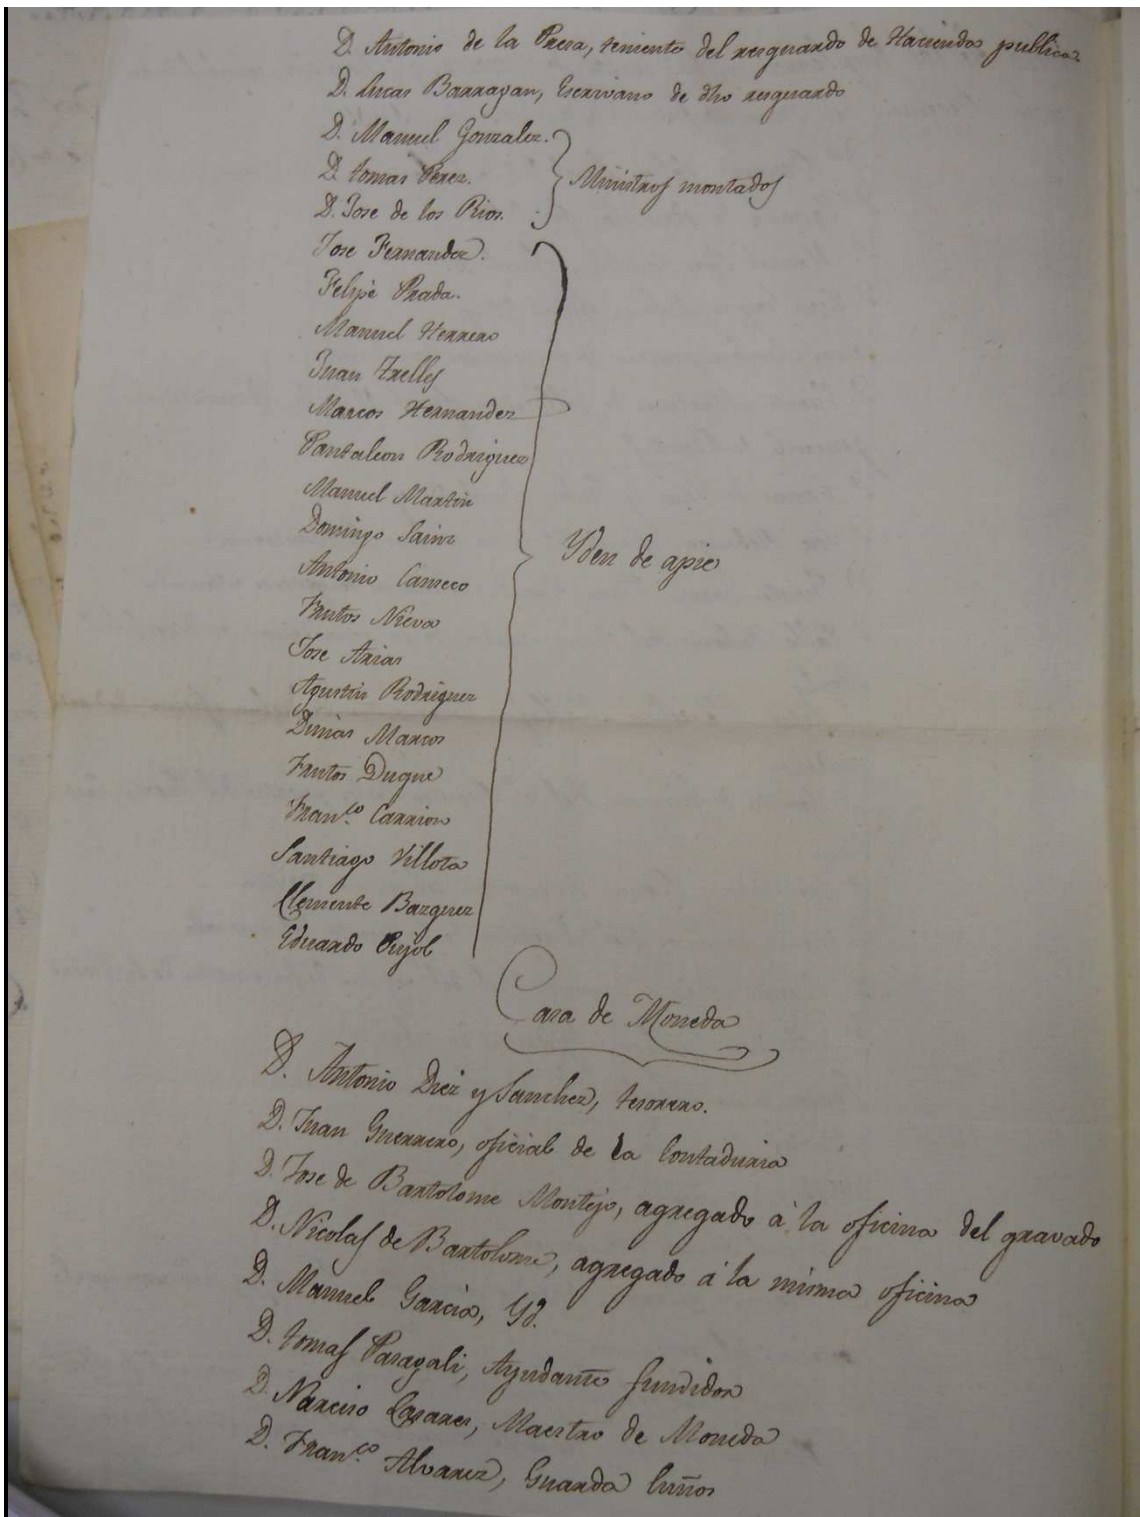 D. Antonio de la Presa, teniente del resguardo de Hacienda publica.
D. Lucas Barragan, Escrivano de dho resguardo
D. Manuel Gonzalez.
D. tomas Perez.
Ministros montados
D. Jose de los Rios.
Jose Fernandez.
Felipe Prada.
Manuel Herrero
Juan Trelles
Marcos Hernandez
Pantaleon Rodriguez
Manuel Martin
Domingo Sainz
Yden de apie
Antonio
Frutos Nieva
Jose Arias
Agustin Rodriguez
Dimas Marcos
Frutos Duque
Fran.co Carrion
Santiago Villota
Clemente Bazquez
Eduardo Pujol
Casa de Moneda
D. Antonio Diez y Sanchez, tesorero.
D. Juan Guerrero, oficial de la Contaduria
D. Jose de Bartolome Montejo, agregado á la oficina del gravado
D. Nicolas de Bartolome, agregado á la misma oficina
D. Manuel Garcia, Yd.
D. tomas Paragali, Ayudante fundidor
D. Narciso Casares, Maestro de Moneda
D. Fran.co Alvarez, Guarda Cuños